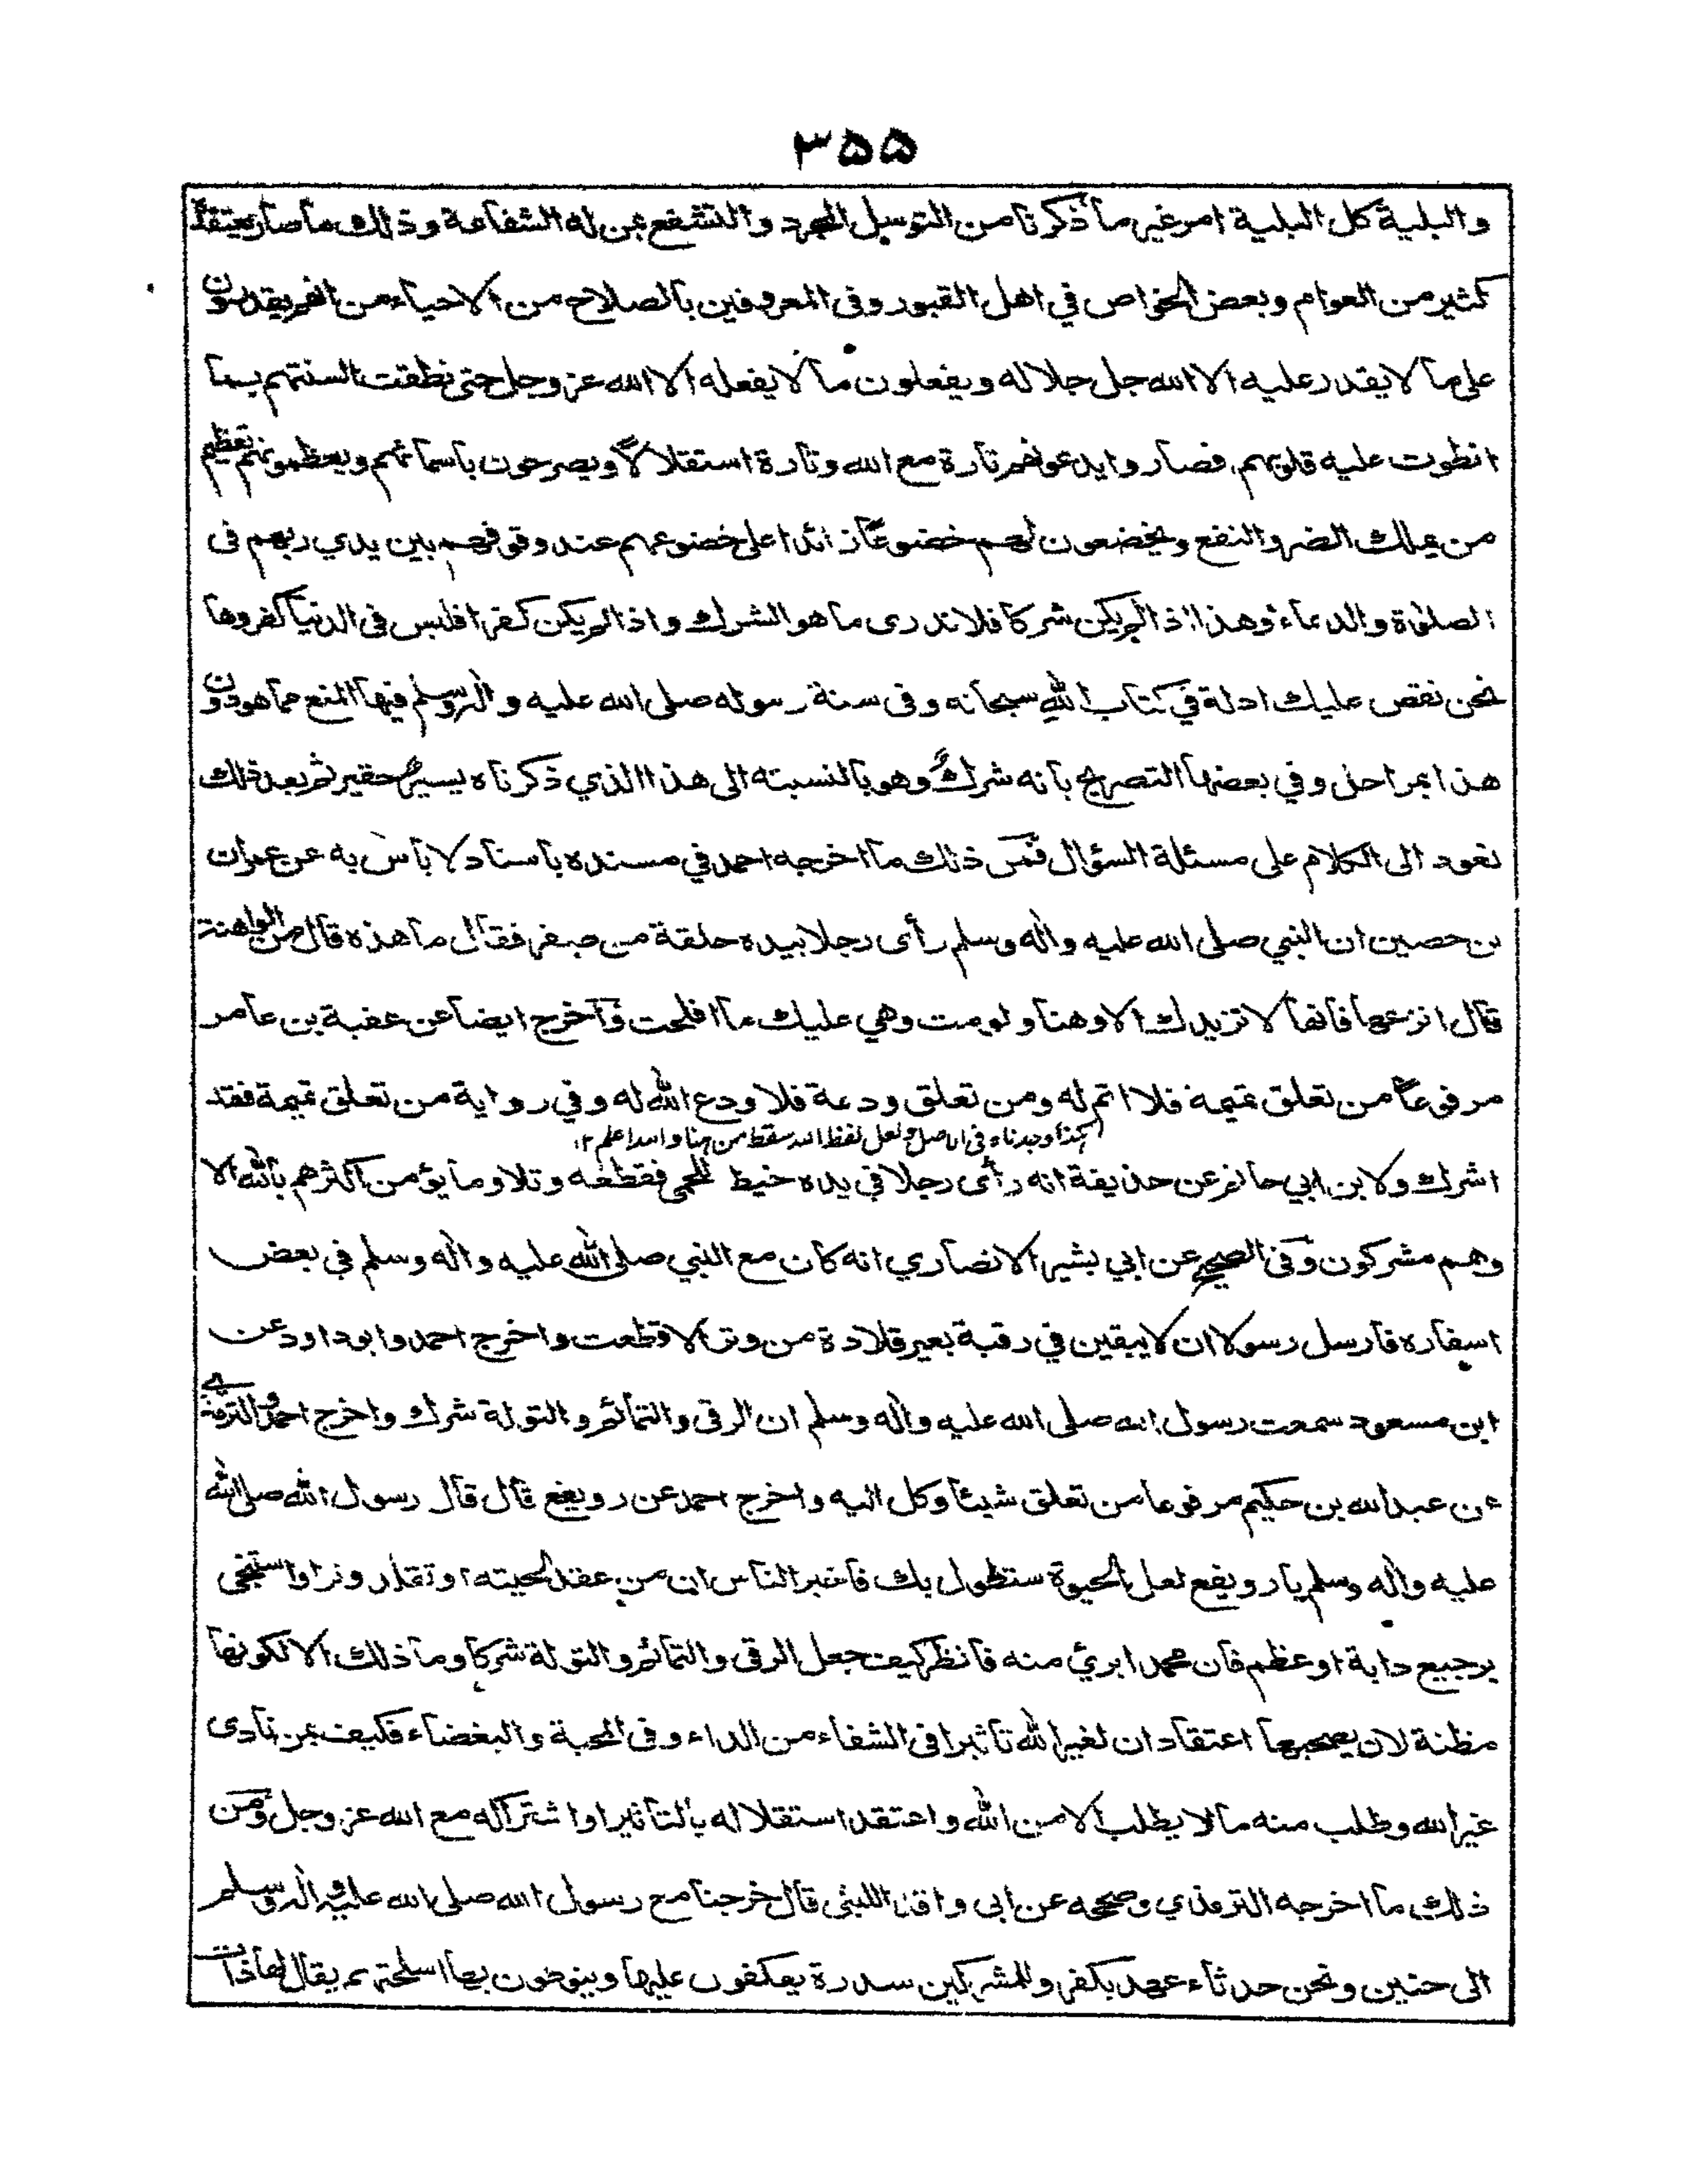 ٣٥٥
والبلية كل البلية امر غير ما ذكرنا من التوسل المجرد والتشفع بمن له الشفاعة وذلك ما صار يعتقده
كثير من العوام وبعض الخواص في اهل القبور وفى المعروفين بالصلاح من الاحياء من انهم يقدرون
على ما لا يقدر عليه الا الله جل جلاله ويفعلون ما لا يفعله الا الله عز وجل حتى نطقت السنتهم بما
انطوت عليه قلوبهم فصاروا يدعونهم تارة مع الله وتارة استقلالا ويصرحون باسمائهم ويعظمونهم تعظيم
من يملك الضر والنفع ويخضعون لهم خضوعا زائدا على خضوعهم عند وقوفهم بين يدي ربهم فى
الصلوة والدعاء وهذا اذا لم يكن شركا فلا ندرى ما هو الشرك واذا لم يكن كفرا فليس فى الدنيا كفر وها
نحن نقص عليك ادلة في كتاب الله سبحانه وفى سنة رسوله صلى الله عليه واله وسلم فيها المنع مما هو دون
هذا بمراحل وفي بعضها التصريح بانه شرك وهو بالنسبته الى هذا الذي ذكرناه يسير حقير ثم بعد ذلك
نعود الى الكلام على مسئلة السؤال فمن ذلك ما اخرجه احمد في مسنده باسناد لا بأس به عن عمران
بن حصين ان النبي صلى الله عليه واله وسلم رأى رجلا بيده حلقة من صفر فقال ما هذه قال من الواهنة
قال انزعها فانها لا تزيدك الا وهنا ولو مت وهي عليك ما افلحت واخرج ايضا عن عقبة بن عامر
مرفوعا من تعلق تميمه فلا اتم له ومن تعلق ودعة فلا ودع الله له وفي رواية من تعلق تميمة فقد
(كذا وجدناه فى الاصل ولعل لفظ الله سقط من هنا والله اعلم ١٢
اشرك ولابن ابي حاتم عن حذيفة انه رأى رجلا في يده خيط للحمى فقطعه وتلا وما يؤمن اكثرهم بالله الا
وهم مشركون وفى الصحيح عن ابي بشير الانصاري انه كان مع النبي صلى الله عليه واله وسلم في بعض
اسفاره فارسل رسولا ان لا يبقين في رقبة بعير قلادة من وتر الا قطعت واخرج احمد وابوداود عن
ابن مسعود سمعت رسول الله صلى الله عليه واله وسلم ان الرقى والتمائم والتولة شرك واخرج احمد والترمذي
عن عبد الله بن حكيم مرفوعا من تعلق شيئا وكل اليه واخرج احمد عن رويفع قال قال رسول الله صلى الله
عليه واله وسلم يا رويفع لعل الحيوة ستطول بك فاخبر الناس ان من عقد لحيته او تقلد وترا او استنجى
برجيع دابة او عظم فان محمدا بري منه فانظر كيف جعل الرقى والتمائم والتولة شركا وما ذلك الا لكونها
مظنة لان يصحبها اعتقاد ان لغير الله تاثيرا فى الشفاء من الداء وفى المحبة والبغضاء فكيف بمن نادى
غير الله وطلب منه ما لا يطلب الا من الله واعتقد استقلاله بالتاثير او اشتراكه مع الله عز وجل ومن
ذلك ما اخرجه الترمذي وصححه عن ابى واقد الليثى قال خرجنا مع رسول الله صلى الله عليه واله وسلم
الى حنين ونحن حدثاء عهد بكفر وللمشركين سدرة يعكفون عليها وينوطون بها اسلحتهم يقال لها ذات